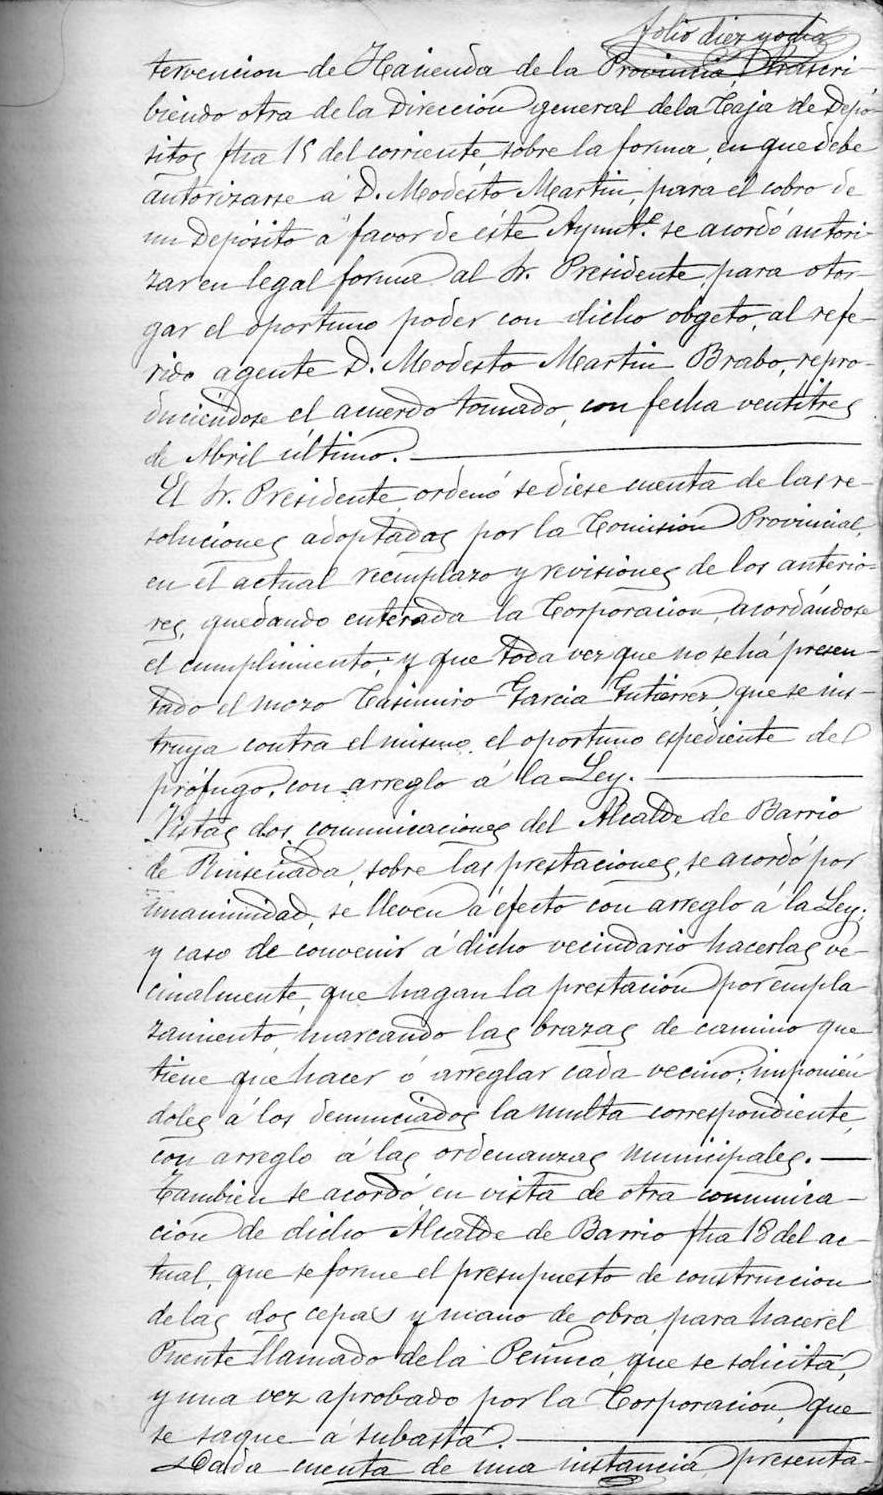 folio diez y ocho
tervencion de Hacienda de la Provincia, trascri-
biendo otra de la Direccion general de la Caja de Depó-
sitos fha 15 del corriente, sobre la forma, en que debe
autorizarse á D. Modesto Martin, para el cobro de
un Depósito á favor de éste Ayuntº. se acordó autori-
zar en legal forma al Sr. Presidente, para otor-
gar el oportuno poder con dicho obgeto, al refe-
rido agente D. Modesto Martin Brabo, repro-
duciéndose el acuerdo tomado, con fecha ventitres
de Abril último.
El Sr. Presidente, ordenó se diese cuenta de las re-
soluciones adoptadas por la Comision Provincial,
en el actual reemplazo y revisiones de los anterio-
res, quedando enterada la Corporacion, acordándose
el cumplimiento; y que toda vez que no se há presen-
tado el mozo Casimiro Garcia Gutierrez, que se ins-
truya contra el mismo, el oportuno espediente del
prófugo, con arreglo á la Ley.
Vistas dos comunicaciones del Alcalde de Barrio
de Rinseñada, sobre las prestaciones, se acordó por
unanimidad, se lleven á éfecto con arreglo á la Ley;
y caso de convenir á dicho vecindario hacerlas ve-
cinalmente, que hagan la prestacion por empla-
zamiento, marcando las brazas de camino que
tiene que hacer ó arreglar cada vecino; imponién
doles á los denunciados la multa correspondiente,
con arreglo á las ordenanzas municipales.
Tambien se acordó, en vista de otra comunica-
cion de dicho Alcalde de Barrio fha 18 del ac-
tual, que se forme el presupuesto de construccion
de las dos cepas y mano de obra, para hacer el
Puente llamado de la que se solicita,
y una vez aprobado por la Corporacion, que
se saque á subasta.
Dada cuenta de una instancia, presenta-